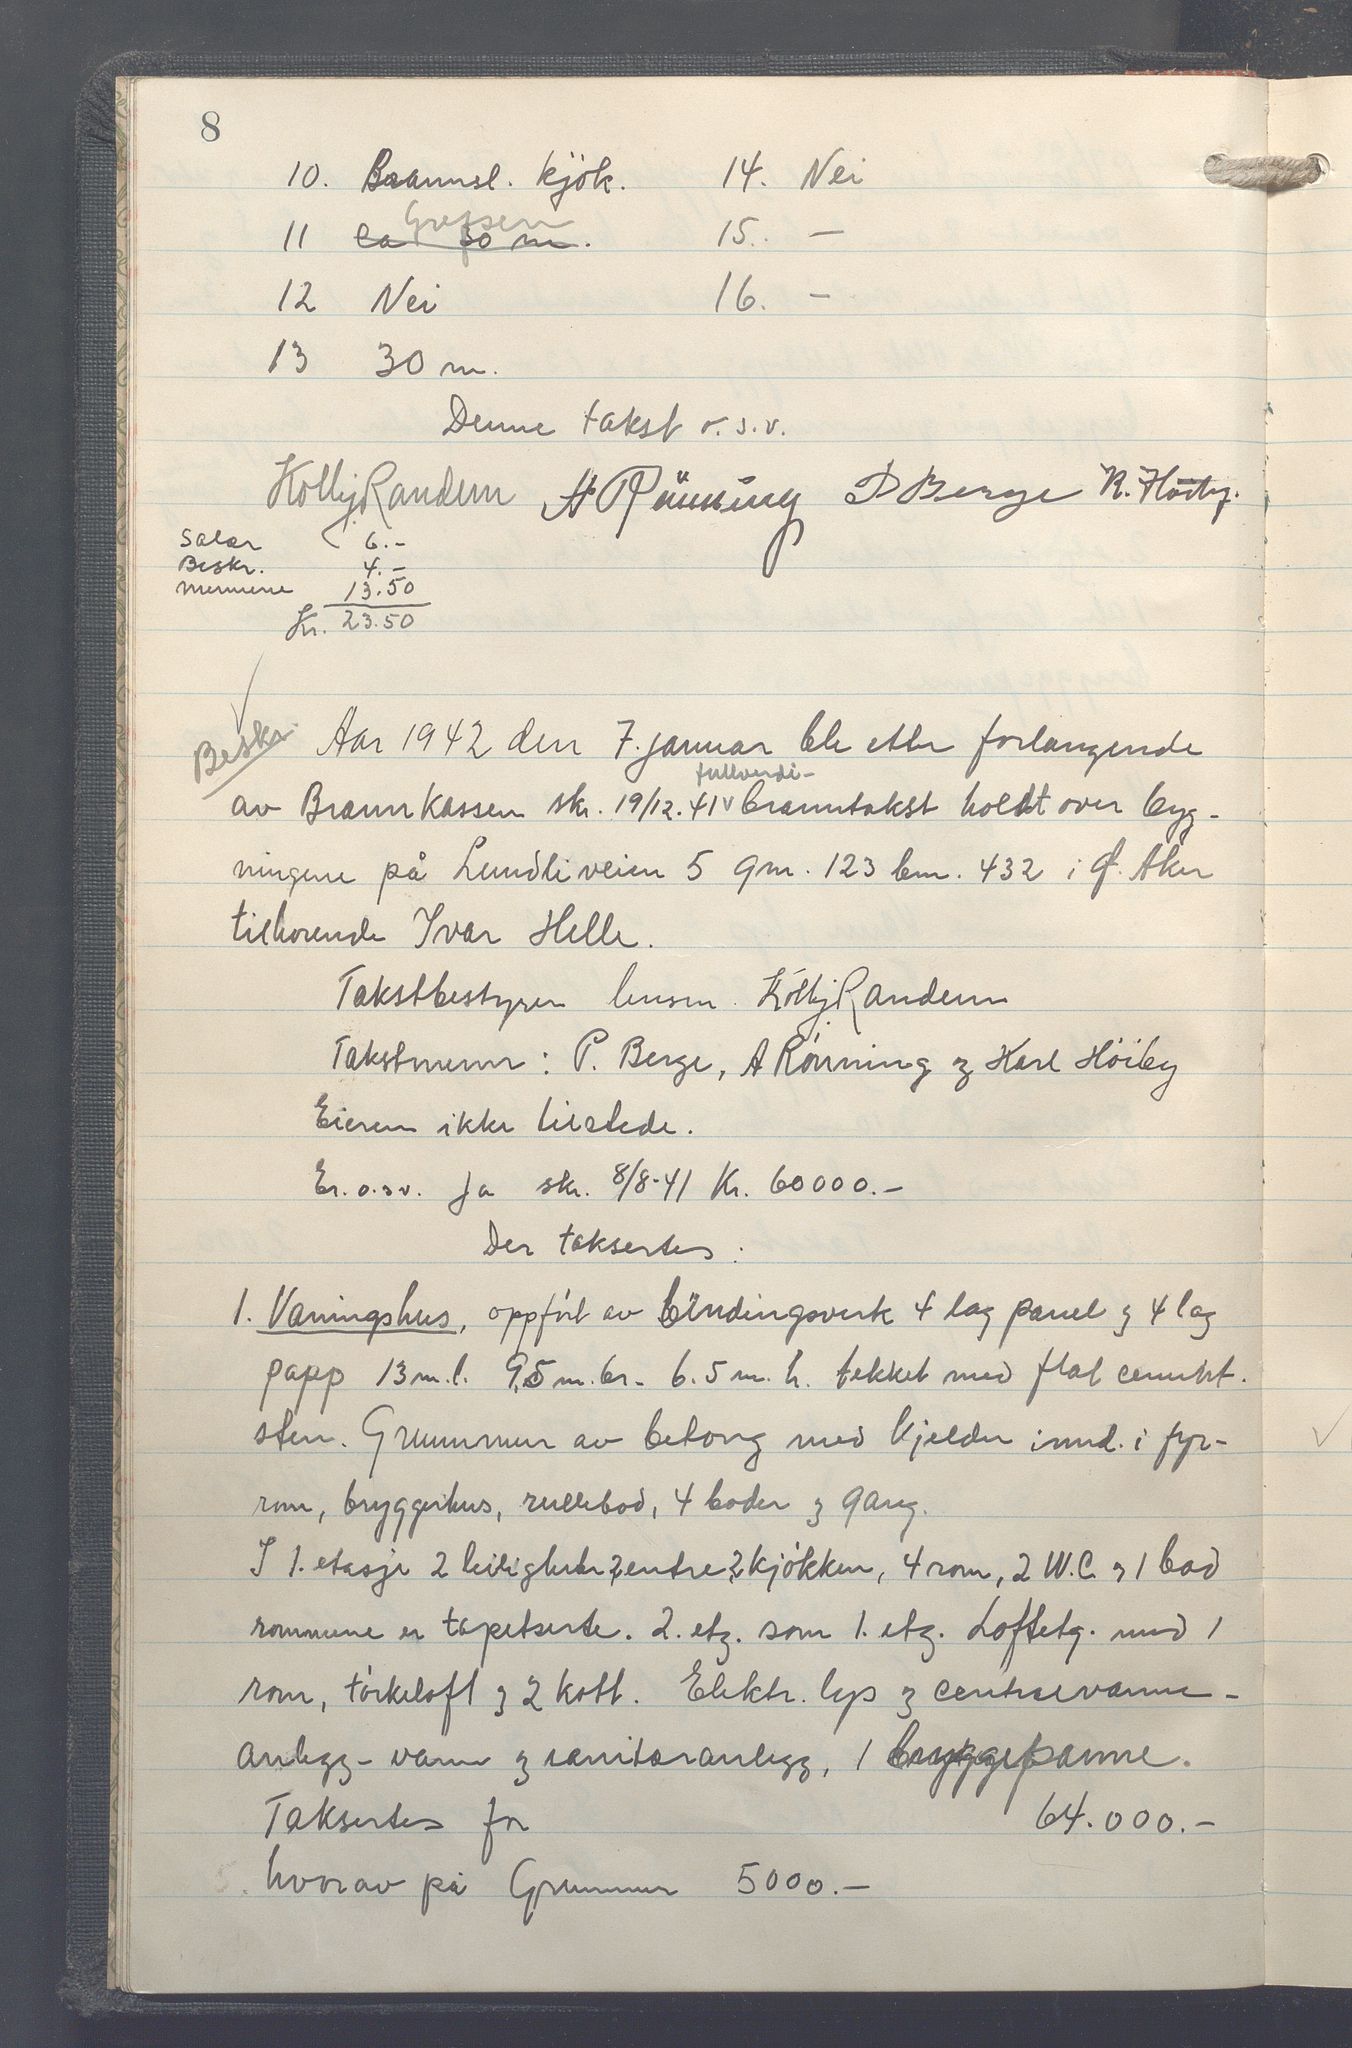 8
10. Brannsl. kjök. 14. Nei
Grefsen
11 ca 30 m. 15. —
12 Nei 16. —
13 30 m.
Denne takst o.s.v.
Kolbj Randem A Rönning P Berge K. Höiby.
Salær 6.-
Beskr. 4.-
mennene 13.50
Kr. 23.50
Beskr. Aar 1942 den 7. januar ble etter forlangende
fullverdi-
av Brannkassen skr. 19/12.41 v branntakst holdt over byg-
ningene på Lundliveien 5 gnr. 123 bnr. 432 i Ø. Aker
tilhorende Ivar Helle.
Takstbestyrer lensm. Kolbj Randem
Takstmenn: P. Berge, A Rönning og Karl Höiby
Eieren ikke tilstede.
Er. o.s.v. Ja skr. 8/8-41 Kr. 60000.-
Der takseres:
1. Vaningshus, oppfört av bindingsverk 4 lag panel og 4 lag
papp 13 m.l. 9,5 m.br. 6.5 m. h. tekket med flat cement.
sten. Grunnmur av betong med kjelder innd. i fyr-
rom, bryggerhus, rullebod, 4 boder og gang.
I 1. etasje 2 leiligheter, 2 entre, 2 kjökken, 4 rom, 2 W.C. og 1 bad
rommene er tapetserte. 2. etg. som 1. etg. Loftetg. med 1
rom, törkeloft og 2 kott. Elektr. lys og centralvarme-
anlegg - vann og sanitæranlegg, 1 bryggepanne.
Takseres for 64.000.-
hvorav på Grunnmur 5000.-